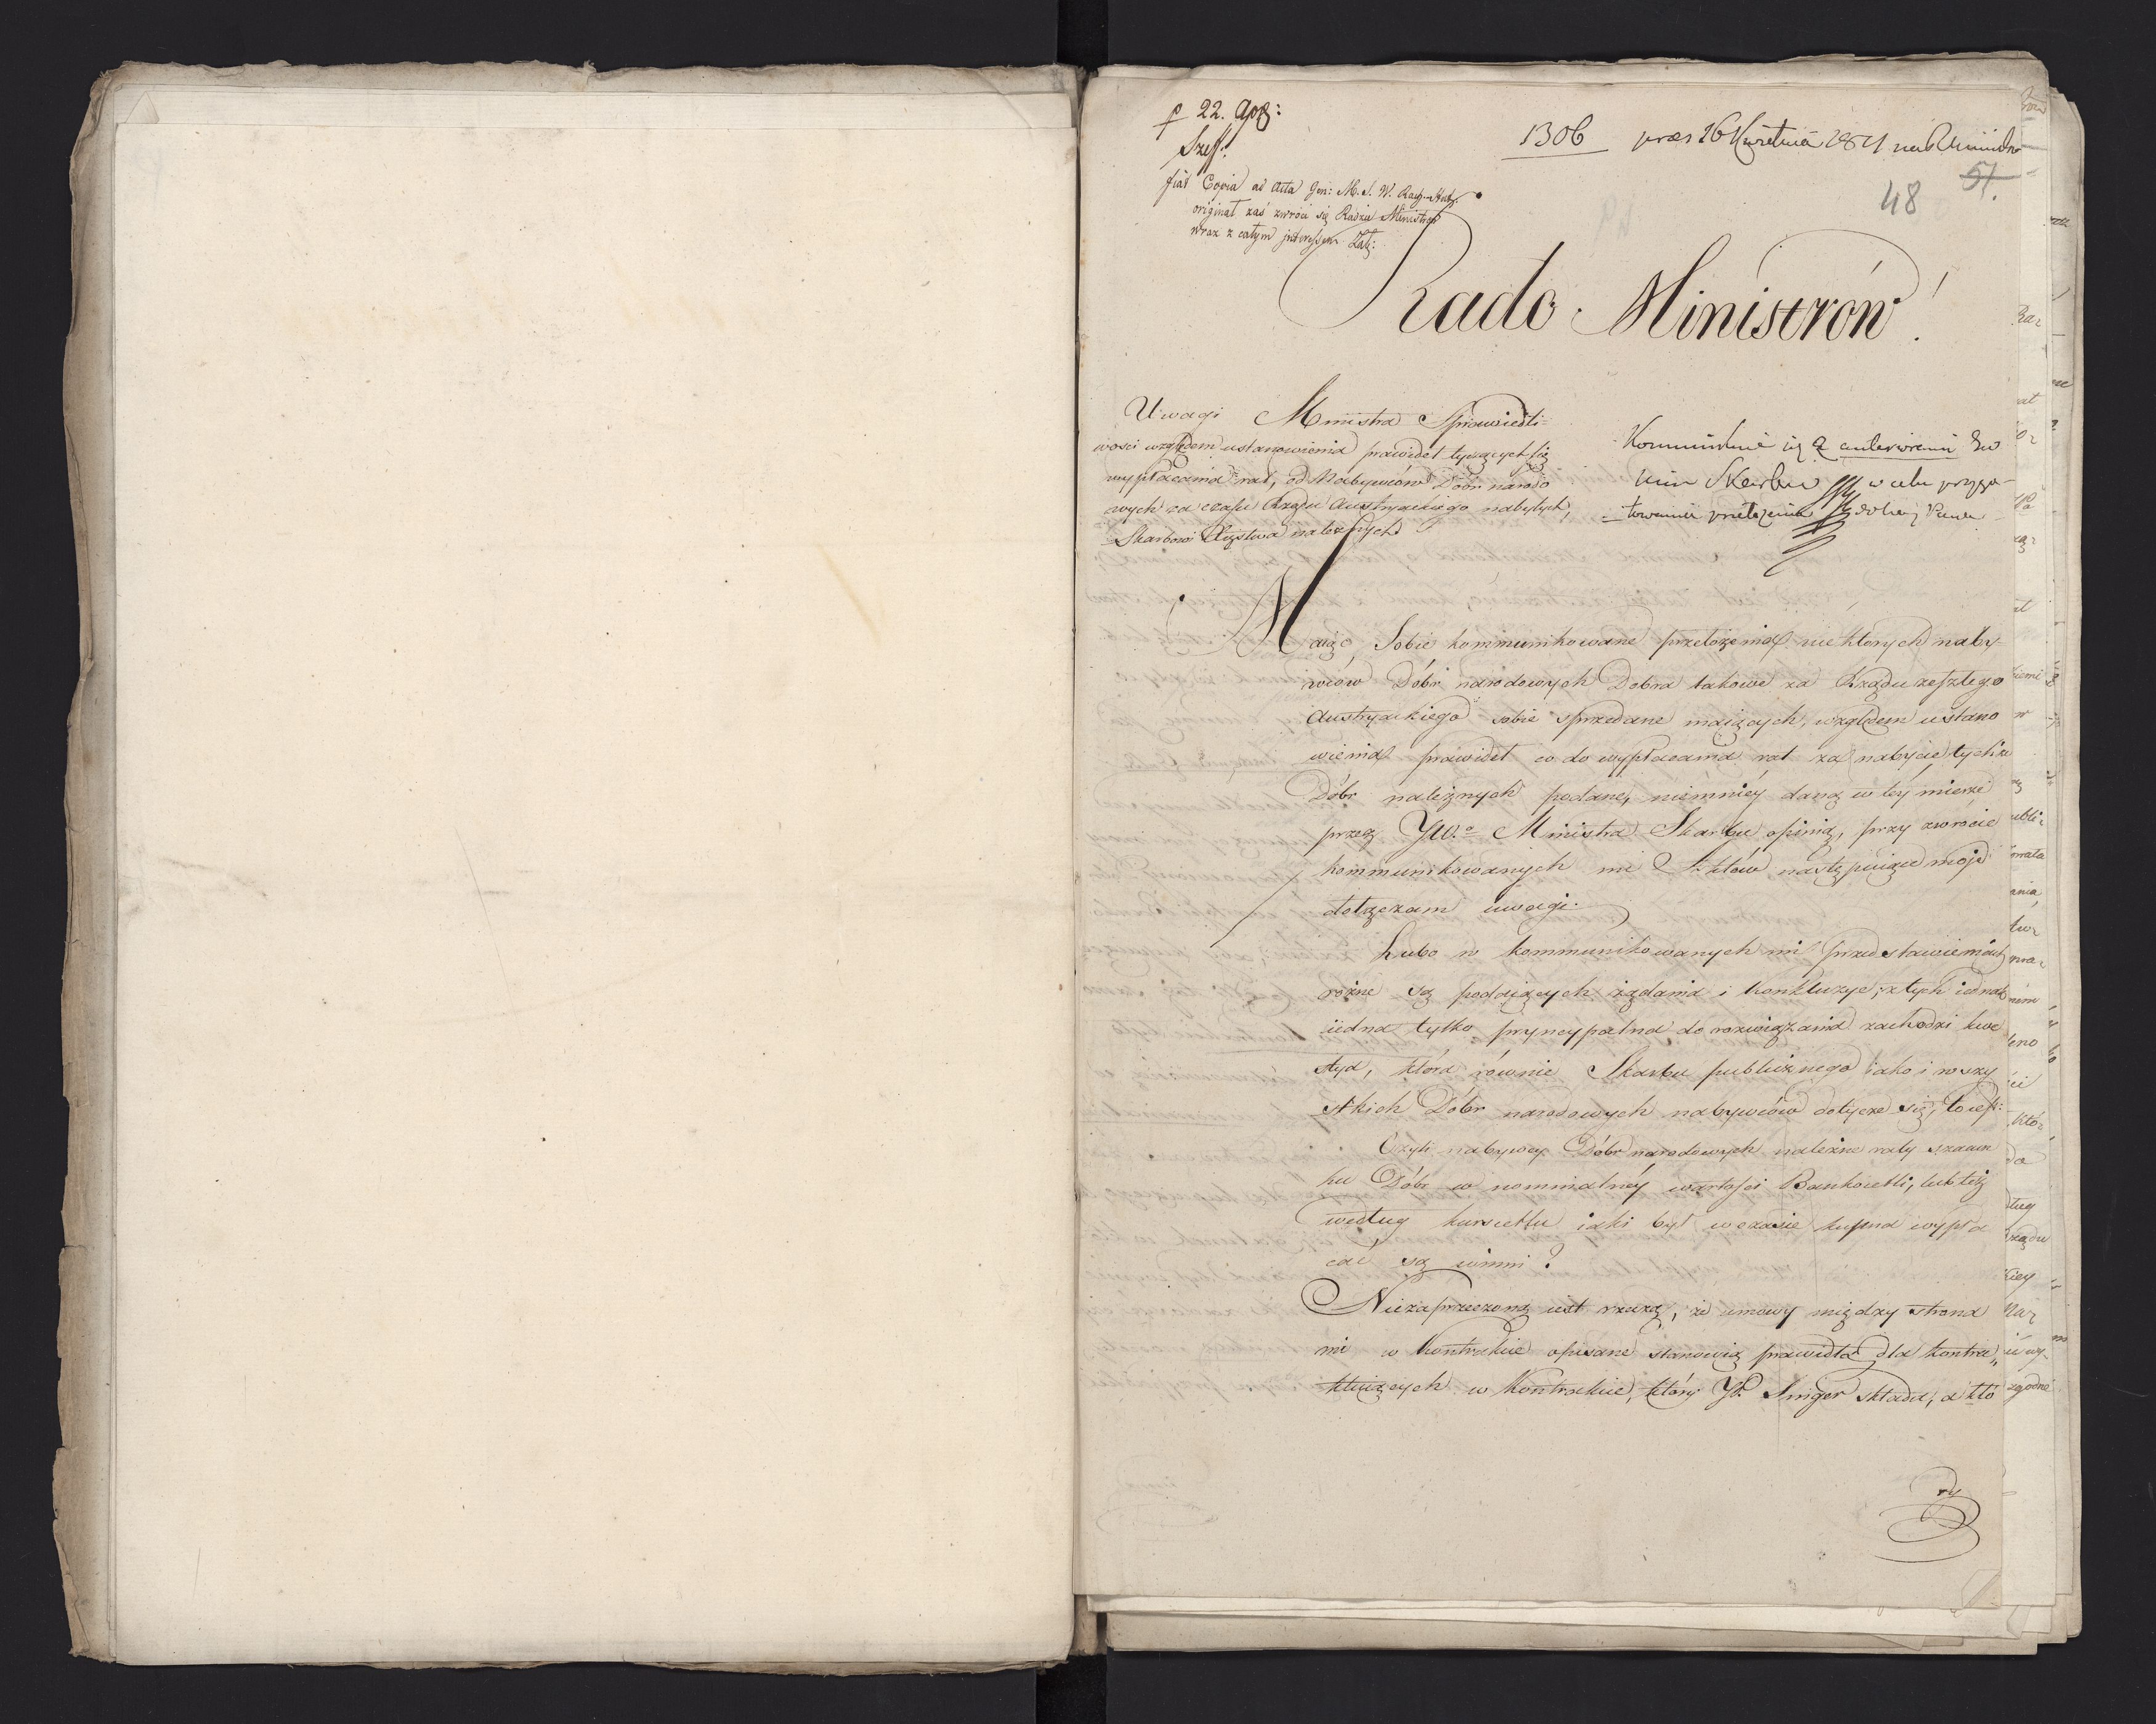 p 22. Apr:
Szeff:
fiat Copia ad Acta Gen: M. S. W.
originał zaś zwróci się Radzie Ministrów
wraz z całym interessem Zał:
1306 præs 16 Kwietnia 1811 na R Ministrów
51.
48
Rado Ministrów!
Uwagi Ministra Sprawiedli=
wości względem ustanowienia prawideł tyczących się
wypłacania rat, od Nabywców Dóbr narodo
wych za czasu Rządu Austryackiego nabytych,
Skarbowi Xięstwa należnych.
Kommunikuie się z
Min Skarbu w celu przygo-
towania przełożenia do Nay: Pana
Maiąc Sobie kommunikowane przełożenia niektórych naby
wców Dóbr narodowych Dobra takowe za Rządu zeszłego
Austryackiego sobie sprzedane maiących, względem ustano
wienia prawideł co do wypłacania rat za nabycie tychże
Dóbr należnych podane, niemniéy daną w téy mierze
przez JW.º Ministra Skarbu opinią, przy zwrocie
kommunikowanych mi Aktów następuiące moje
dołączam uwagi:
Lubo w kommunikowanych mi przedstawieniach
rożne są poddaiących żądania i konkluzye; z tych iednak
iedna tylko pryncypalna do rozwiązania zachodzi kwe
stya, która równie Skarbu publicznego iako i wszy
stkich Dóbr narodowych nabywców dotycze się, to iest:
Czyli nabywcy Dóbr narodowych należne raty szacun
ku Dóbr w nominalnéy wartości Bankocetli, lub też
według kurs cetlu iaki był w czasie kupna wypła
cać są winni?
Niezaprzeczoną iest rzeczą, że umowy między strona
mi w kontrakcie opisane stanowią prawidła dla kontra„
ktuiących w Kontrakcie, który JP. Singer składa, a któ
ry